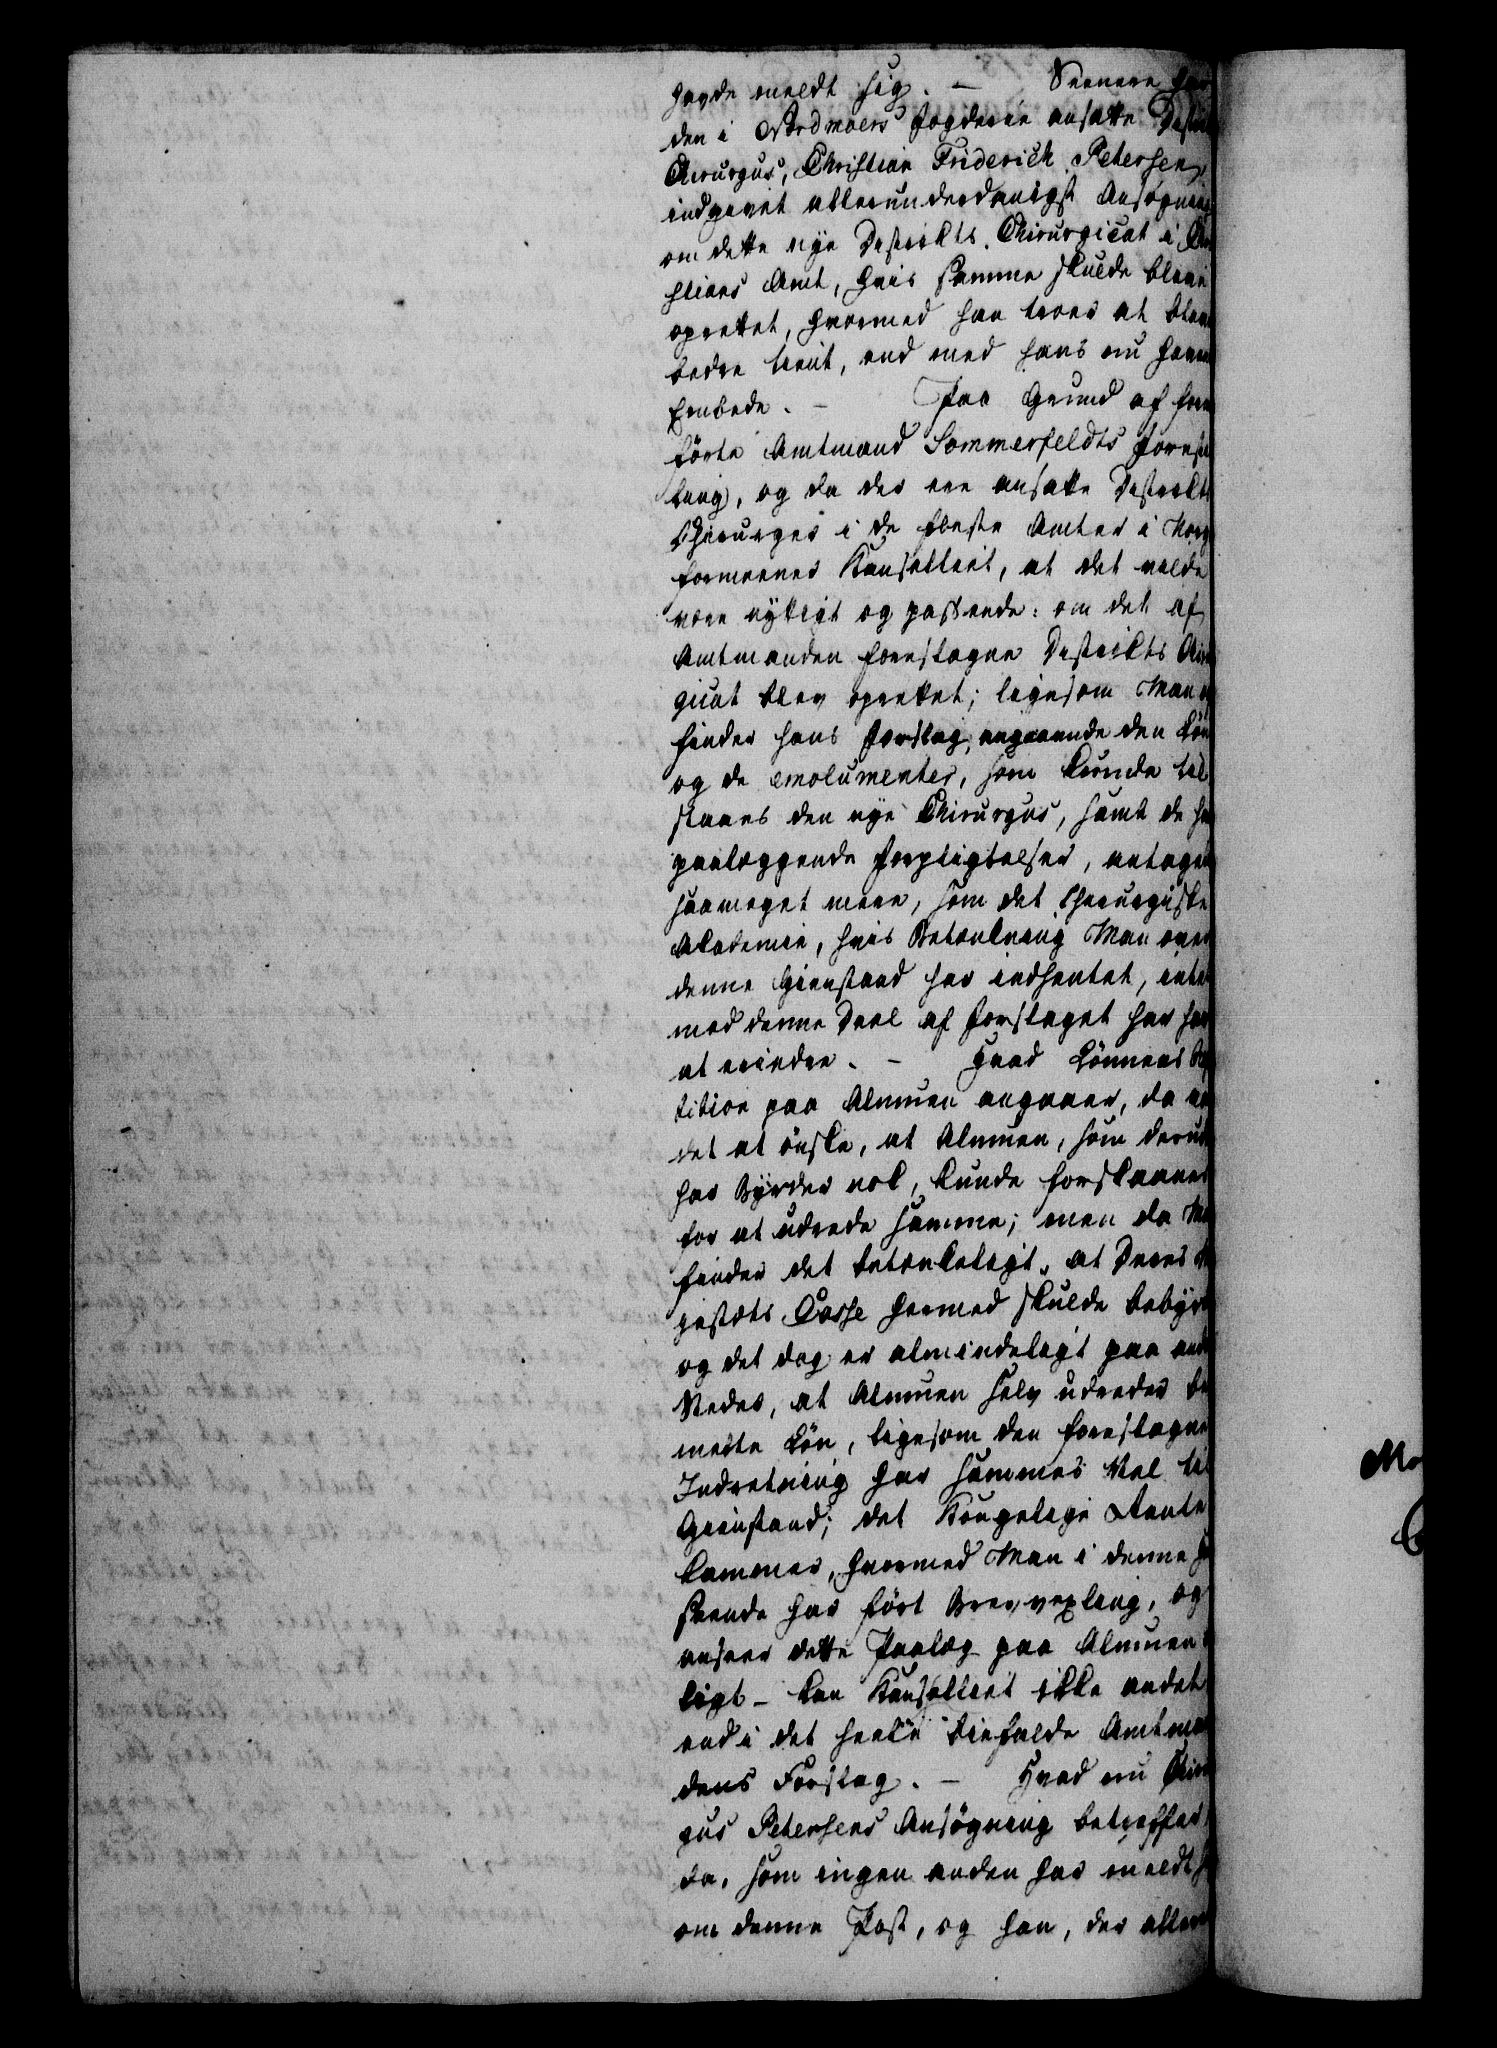 havde meldt sig. — Seenere har
den i Nordmoers Fogderie ansatte Distr
Chirurgus, Christian Friderich Petersen,
indgivet allerunderdanigst Ansøgning
om dette nye Districkts Chirurgicat i Chri
stians Amt, hvis samme skulde blive
oprettet, hvormed han troer at blive
bedre tient, end med hans nu havende
Embede. — Paa Grund af foran
førte Amtmand Sommerfeldts Forestil
ling, og da der ere ansatte Districkts
Chirurger i de fleste Amter i Norge
formeener Kancelliet, at det vilde
være nyttigt og passende: om det af
Amtmanden foreslagne Districkts Chirur
gicat blev oprettet; ligesom Man og
finder hans Forslag, angaaende den Løn
og de emolumenter, som kunde til
staaes den nye Chirurgus, samt de ham
paalæggende Forpligtelser, antagelig
saameget meere, som det chirurgiske
Academie, hvis Betænkning Man over
denne Gienstand har indhentet, intet
mod denne Deel af Forslaget har havt
at erindre. — Hvad Lønnens Repar
tition paa Almuen angaaer, da var
det at ønske, at Almuen, som desuden
har Byrder nok, kunde forskaanes
for at udrede samme; men da Man
finder det betænkeligt, at Deres Ma
jestæts Casse hermed skulde bebyrdes
og det dog er almindeligt paa andre
Steder, at Almuen selv udreder be
meldte Løn, ligesom den foreslagne
Indretning har sammes Vel til
Gienstand; det Kongelige Rente
kammer, hvormed Man i denne Hen
seende har ført Brevvexling, og
anseer dette Paalæg paa Almuen
ligt — kan Kancelliet ikke andet
end i det heele biefalde Amtman
dens Forslag. — Hvad nu Chirur
gus Petersens Ansøgning betreffer,
da, som ingen anden har meldt sig
om denne Post, og han, der allere